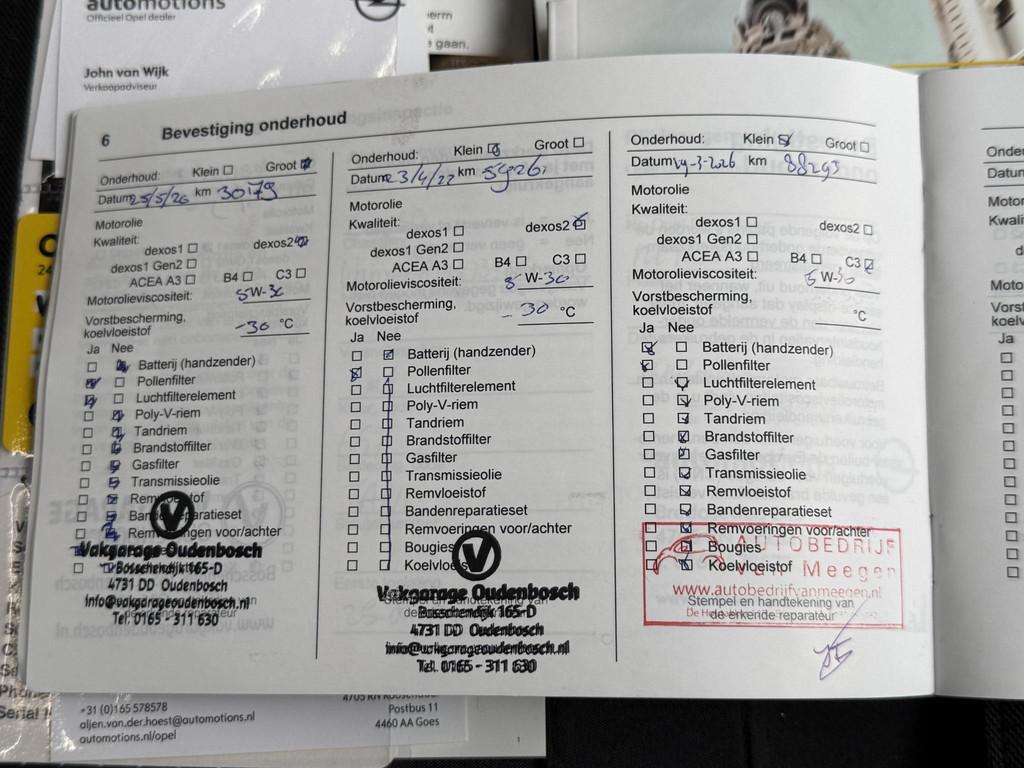 automotions
Officieel Opel dealer
John van Wijk
Verkoopadviseur
erm
gaan.
6
Bevestiging onderhoud
Onderhoud: Klein Groot
Datum 25/5/20 km 30179
Motorolie
Kwaliteit:
dexos1 dexos2
dexos1 Gen2
ACEA A3 B4 C3
Motorolieviscositeit: 5W-30
Vorstbescherming,
koelvloeistof -30 °C
Ja Nee
Batterij (handzender)
Pollenfilter
Luchtfilterelement
Poly-V-riem
Tandriem
Brandstoffilter
Gasfilter
Transmissieolie
Remvloeistof
Bandenreparatieset
Remvoeringen voor/achter
Vakgarage Oudenbosch
Bosschendijk 165-D
4731 DD Oudenbosch
info@vakgarageoudenbosch.nl
Tel. 0165 - 311 630
Onderhoud: Klein Groot
Datum 23/4/22 km
Motorolie
Kwaliteit:
dexos1 dexos2
dexos1 Gen2
ACEA A3 B4 C3
Motorolieviscositeit: 5 W-30
Vorstbescherming,
koelvloeistof -30 °C
Ja Nee
Batterij (handzender)
Pollenfilter
Luchtfilterelement
Poly-V-riem
Tandriem
Brandstoffilter
Gasfilter
Transmissieolie
Remvloeistof
Bandenreparatieset
Remvoeringen voor/achter
Bougies
Koelvloeistof
Stempel en handtekening van
Vakgarage Oudenbosch
Bosschendijk 165-D
4731 DD Oudenbosch
info@vakgarageoudenbosch.nl
Tel. 0165 - 311 630
Onderhoud: Klein Groot
Datum km 88293
Motorolie
Kwaliteit:
dexos1 dexos2
dexos1 Gen2
ACEA A3 B4 C3
Motorolieviscositeit: 5 W-30
Vorstbescherming,
koelvloeistof °C
Ja Nee
Batterij (handzender)
Pollenfilter
Luchtfilterelement
Poly-V-riem
Tandriem
Brandstoffilter
Gasfilter
Transmissieolie
Remvloeistof
Bandenreparatieset
Remvoeringen voor/achter
Bougies
Koelvloeistof
AUTOBEDRIJF
van Meegen
www.autobedrijfvanmeegen.nl
Stempel en handtekening van
de erkende reparateur
+31 (0)165 578578
aljen.van.der.hoest@automotions.nl
automotions.nl/opel
Postbus 11
4460 AA Goes